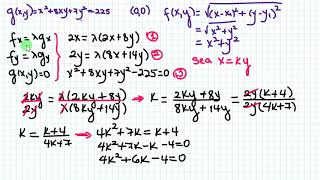 g(x,y)=x²+8xy+7y²=225 (0,0) f(x,y)=√(x-x₁)²+(y-y₁)²
=√x²+y²
fx=λgx 2x=λ(2x+8y) ① =x²+y²
fy=λgy 2y=λ(8x+14y) ②
g(x,y)=0 x²+8xy+7y²-225=0 ③ sea x=ky
2ky/2y=λ(2ky+8y)/λ(8ky+14y) → k=2ky+8y/8ky+14y=2y(k+4)/2y(4k+7)
k=k+4/4k+7 → 4k²+7k=k+4
4k²+7k-k-4=0
4k²+6k-4=0